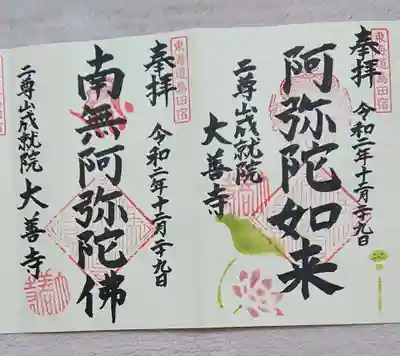 東海道島田宿
奉拝
令和二年十二月廿九日
阿弥陀如来
二尊山成就院
大善寺
東海道島田宿
奉拝
令和二年十二月廿九日
南無阿弥陀佛
二尊山成就院
大善寺